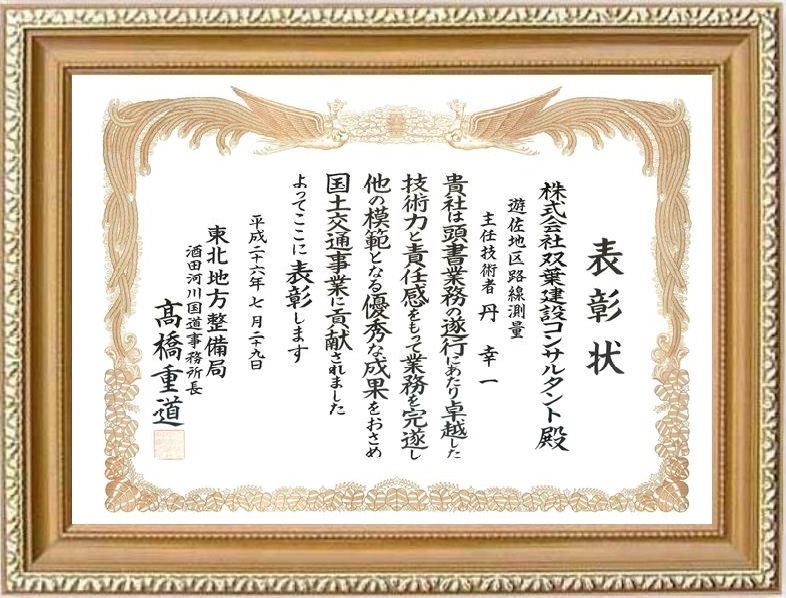 表彰状
株式会社双葉建設コンサルタント殿
遊佐地区路線測量
主任技術者 丹 幸一
貴社は頭書業務の遂行にあたり卓越した
技術力と責任感をもって業務を完遂し
他の模範となる優秀な成果をおさめ
国土交通事業に貢献されました
よってここに表彰します
平成二十六年七月二十九日
東北地方整備局
酒田河川国道事務所長
髙橋重道